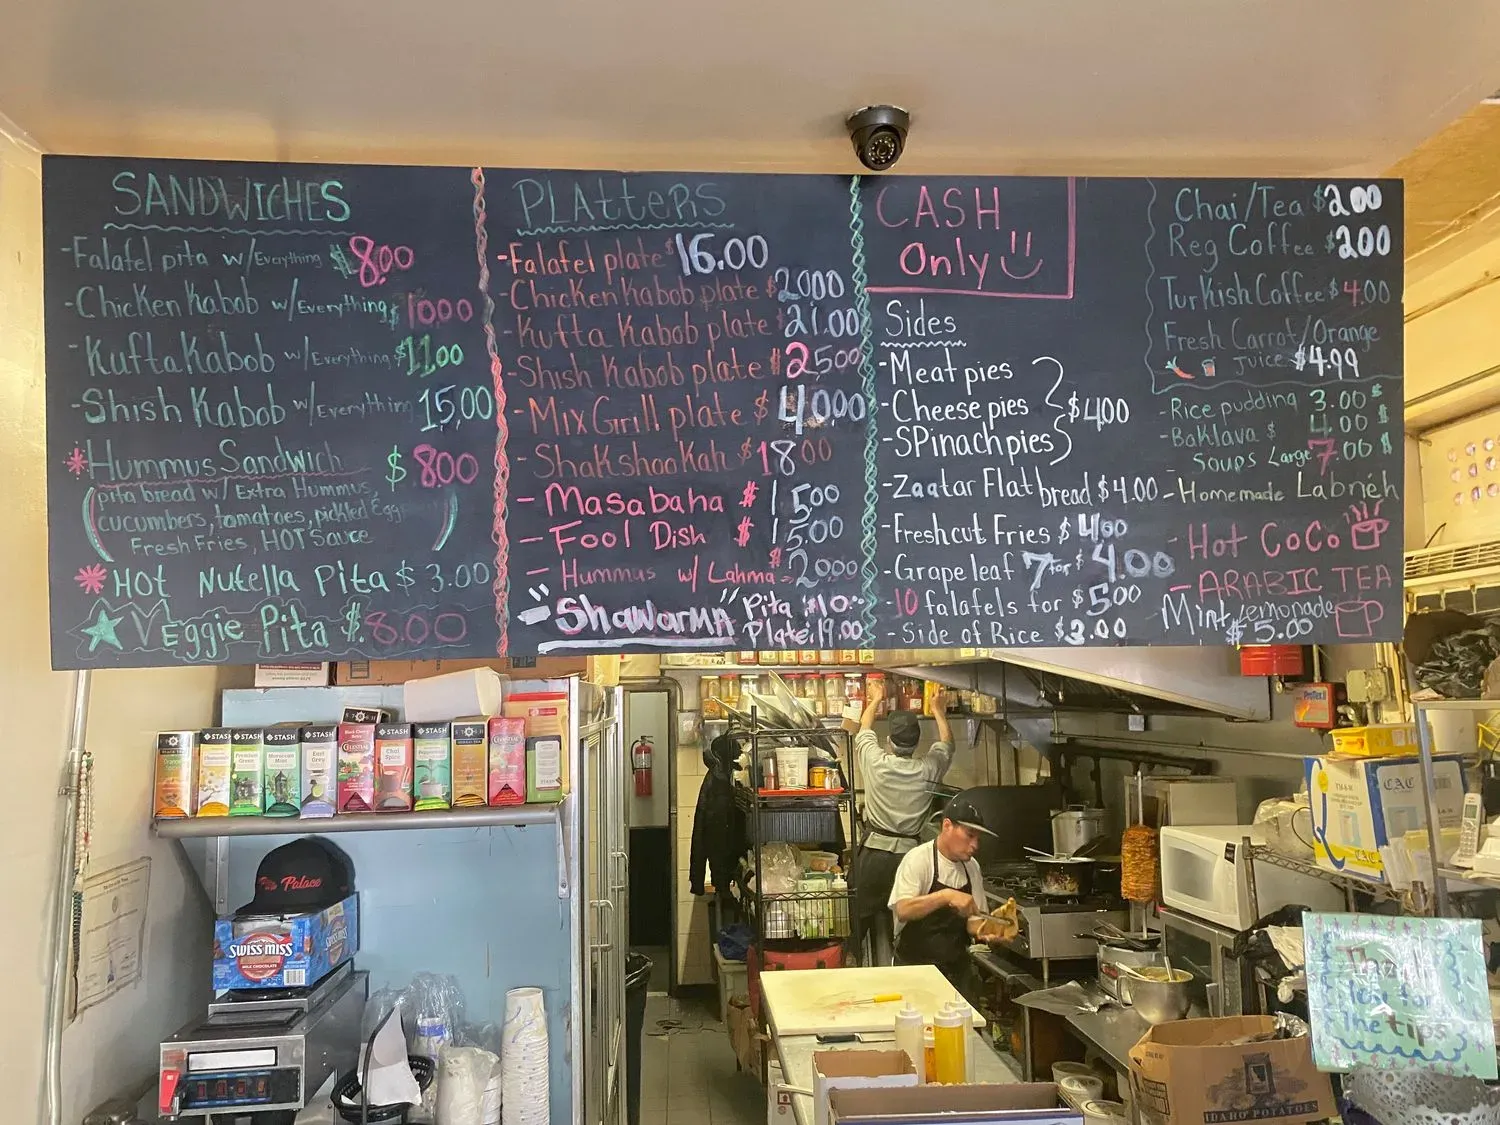 SANDWICHES
-Falafel pita w/Everything $8.00
-Chicken Kabob w/Everything $1000
-Kufta Kabob w/Everything $11.00
-Shish Kabob w/Everything 15,00
*Hummus Sandwich $800
(pita bread w/ Extra Hummus,
cucumbers, tomatoes, pickled Egg
Fresh Fries, HOT Sauce)
*HOT Nutella Pita $3.00
Veggie Pita $.8.00
PLAttERS
-Falafel plate $16.00
-Chicken Kabob plate $2000
-Kufta Kabob plate $21.00
-Shish Kabob plate $2500
-Mix Grill plate $4,000
-ShakshooKah $1800
-Masabaha $1500
-Fool Dish $15.00
-Hummus w/ Lahma- $2000
"ShawarmA" Pita $10.-
Plate 19.00
CASH
Only
Sides
-Meat pies
-Cheese pies $4.00
-SPinach pies
-Zaatar Flat bread $4.00
-Freshcut Fries $4.00
-Grape leaf 7 for $4.00
-10 falafels for $5.00
-Side of Rice $3.00
Chai/Tea $200
Reg Coffee $200
Turkish Coffee $4.00
Fresh Carrot/Orange
Juice $4.99
-Rice pudding 3.00$
-Baklava $ 4.00$
Soups Large 7.00 $
-Homemade Labneh
-Hot CoCo
-ARABIC TEA
Mint Lemonade
$5.00
STASH
STASH
STASH
STASH
STASH
Premium Green
Moroccan Mint
Earl Grey
CELESTIAL
Chai Spice
STASH
Palace
SWISS MISS
MILK CHOCOLATE
ProTex II
CAC
IDAHO POTATOES
the tips